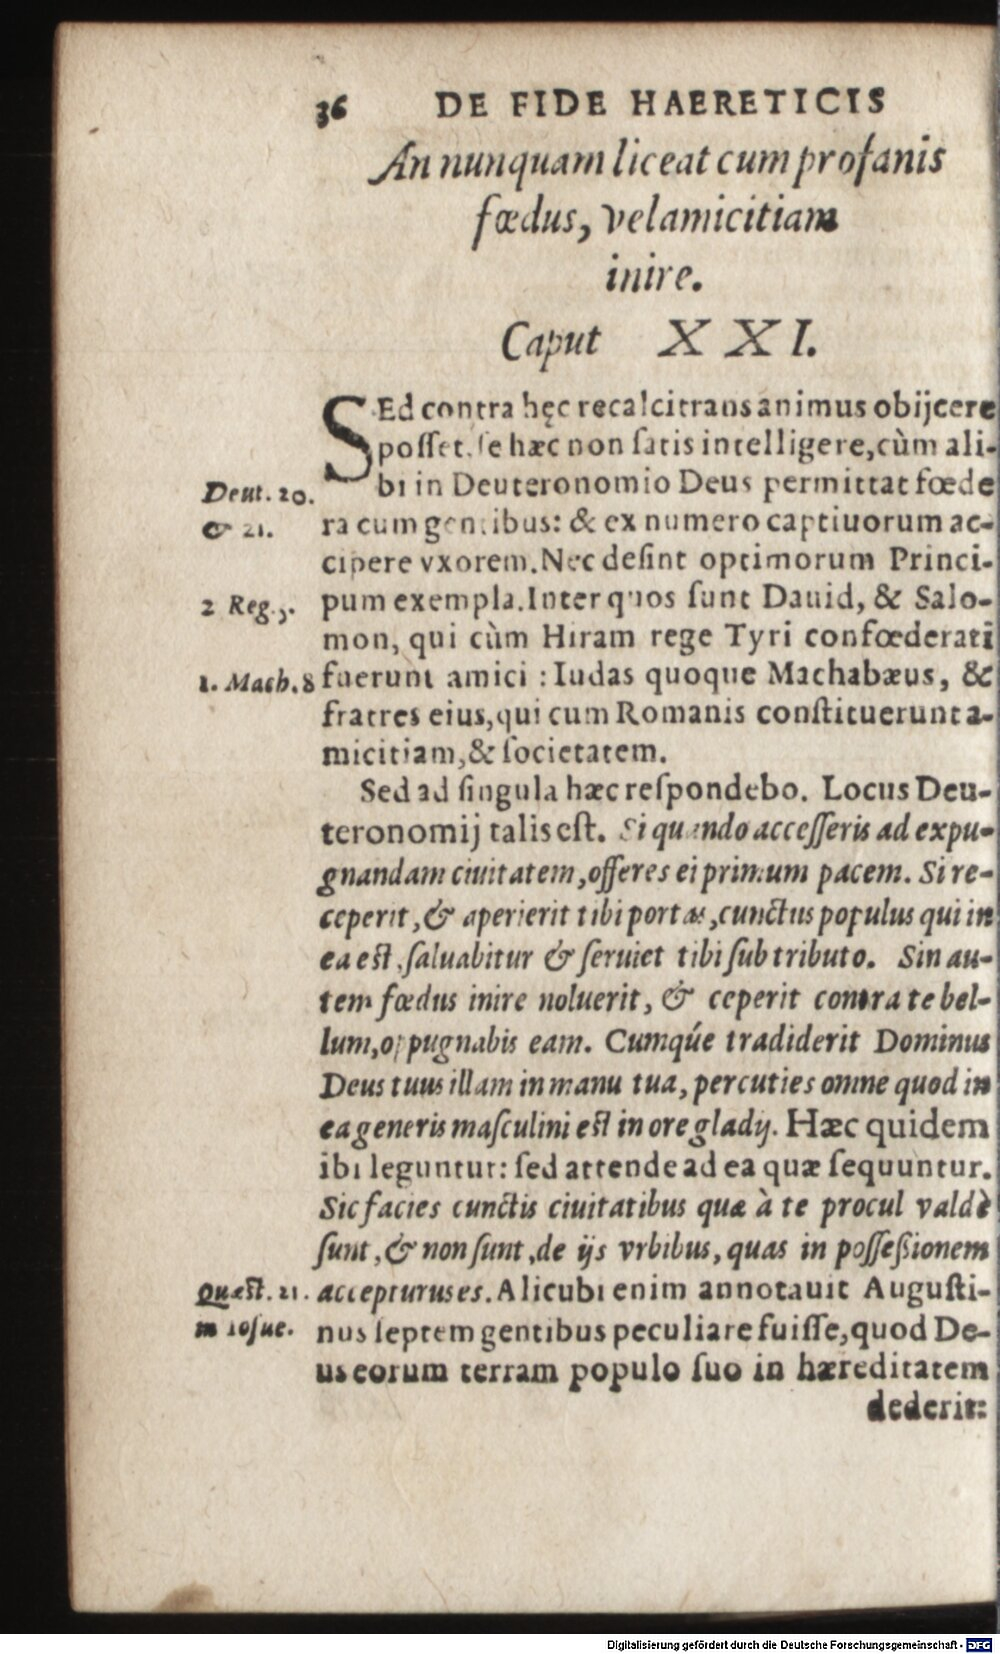 36 DE FIDE HAERETICIS
An nunquam liceat cum profanis
fœdus, vel amicitiam
inire.
Caput XXI.
SEd contra hęc recalcitrans animus obijcere
posset, se hæc non satis intelligere, cùm ali-
bi in Deuteronomio Deus permittat fœde
Deut. 20.
ra cum gentibus: & ex numero captiuorum ac-
& 21.
cipere vxorem. Nec desint optimorum Princi-
pum exempla. Inter quos sunt Dauid, & Salo-
2 Reg. 5.
mon, qui cùm Hiram rege Tyri confœderati
fuerunt amici : Iudas quoque Machabæus, &
1. Mach. 8
fratres eius, qui cum Romanis constituerunt a-
micitiam, & societatem.
Sed ad singula hæc respondebo. Locus Deu-
teronomij talis est. Si quando accesseris ad expu-
gnandam ciuitatem, offeres ei primum pacem. Si re-
ceperit, & aperierit tibi portas, cunctus populus qui in
ea est, saluabitur & seruiet tibi sub tributo. Sin au-
tem fœdus inire noluerit, & ceperit contra te bel-
lum, oppugnabis eam. Cumqúe tradiderit Dominus
Deus tuus illam in manu tua, percuties omne quod in
ea generis masculini est in ore gladij. Hæc quidem
ibi leguntur: sed attende ad ea quæ sequuntur.
Sic facies cunctis ciuitatibus quæ à te procul valdè
sunt, & non sunt, de ijs vrbibus, quas in possessionem
accepturus es. Alicubi enim annotauit Augusti-
Quæst. 21.
nus septem gentibus peculiare fuisse, quod De-
in Iosue.
us eorum terram populo suo in hæreditatem
dederit:
Digitalisierung gefördert durch die Deutsche Forschungsgemeinschaft - DFG